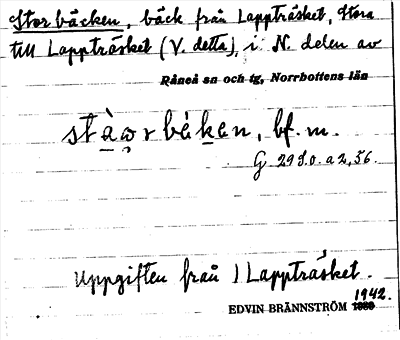 Storbäcken, bäck från Lappträsket, Stora
till Lappträsket (V. detta), i N. delen av
Råneå sn och tg, Norrbottens län
stàwrbéken, bf. m.
G. 29 S.o. a 2, 56.
Uppgiften från Lappträsket.
1942.
EDVIN BRÄNNSTRÖM